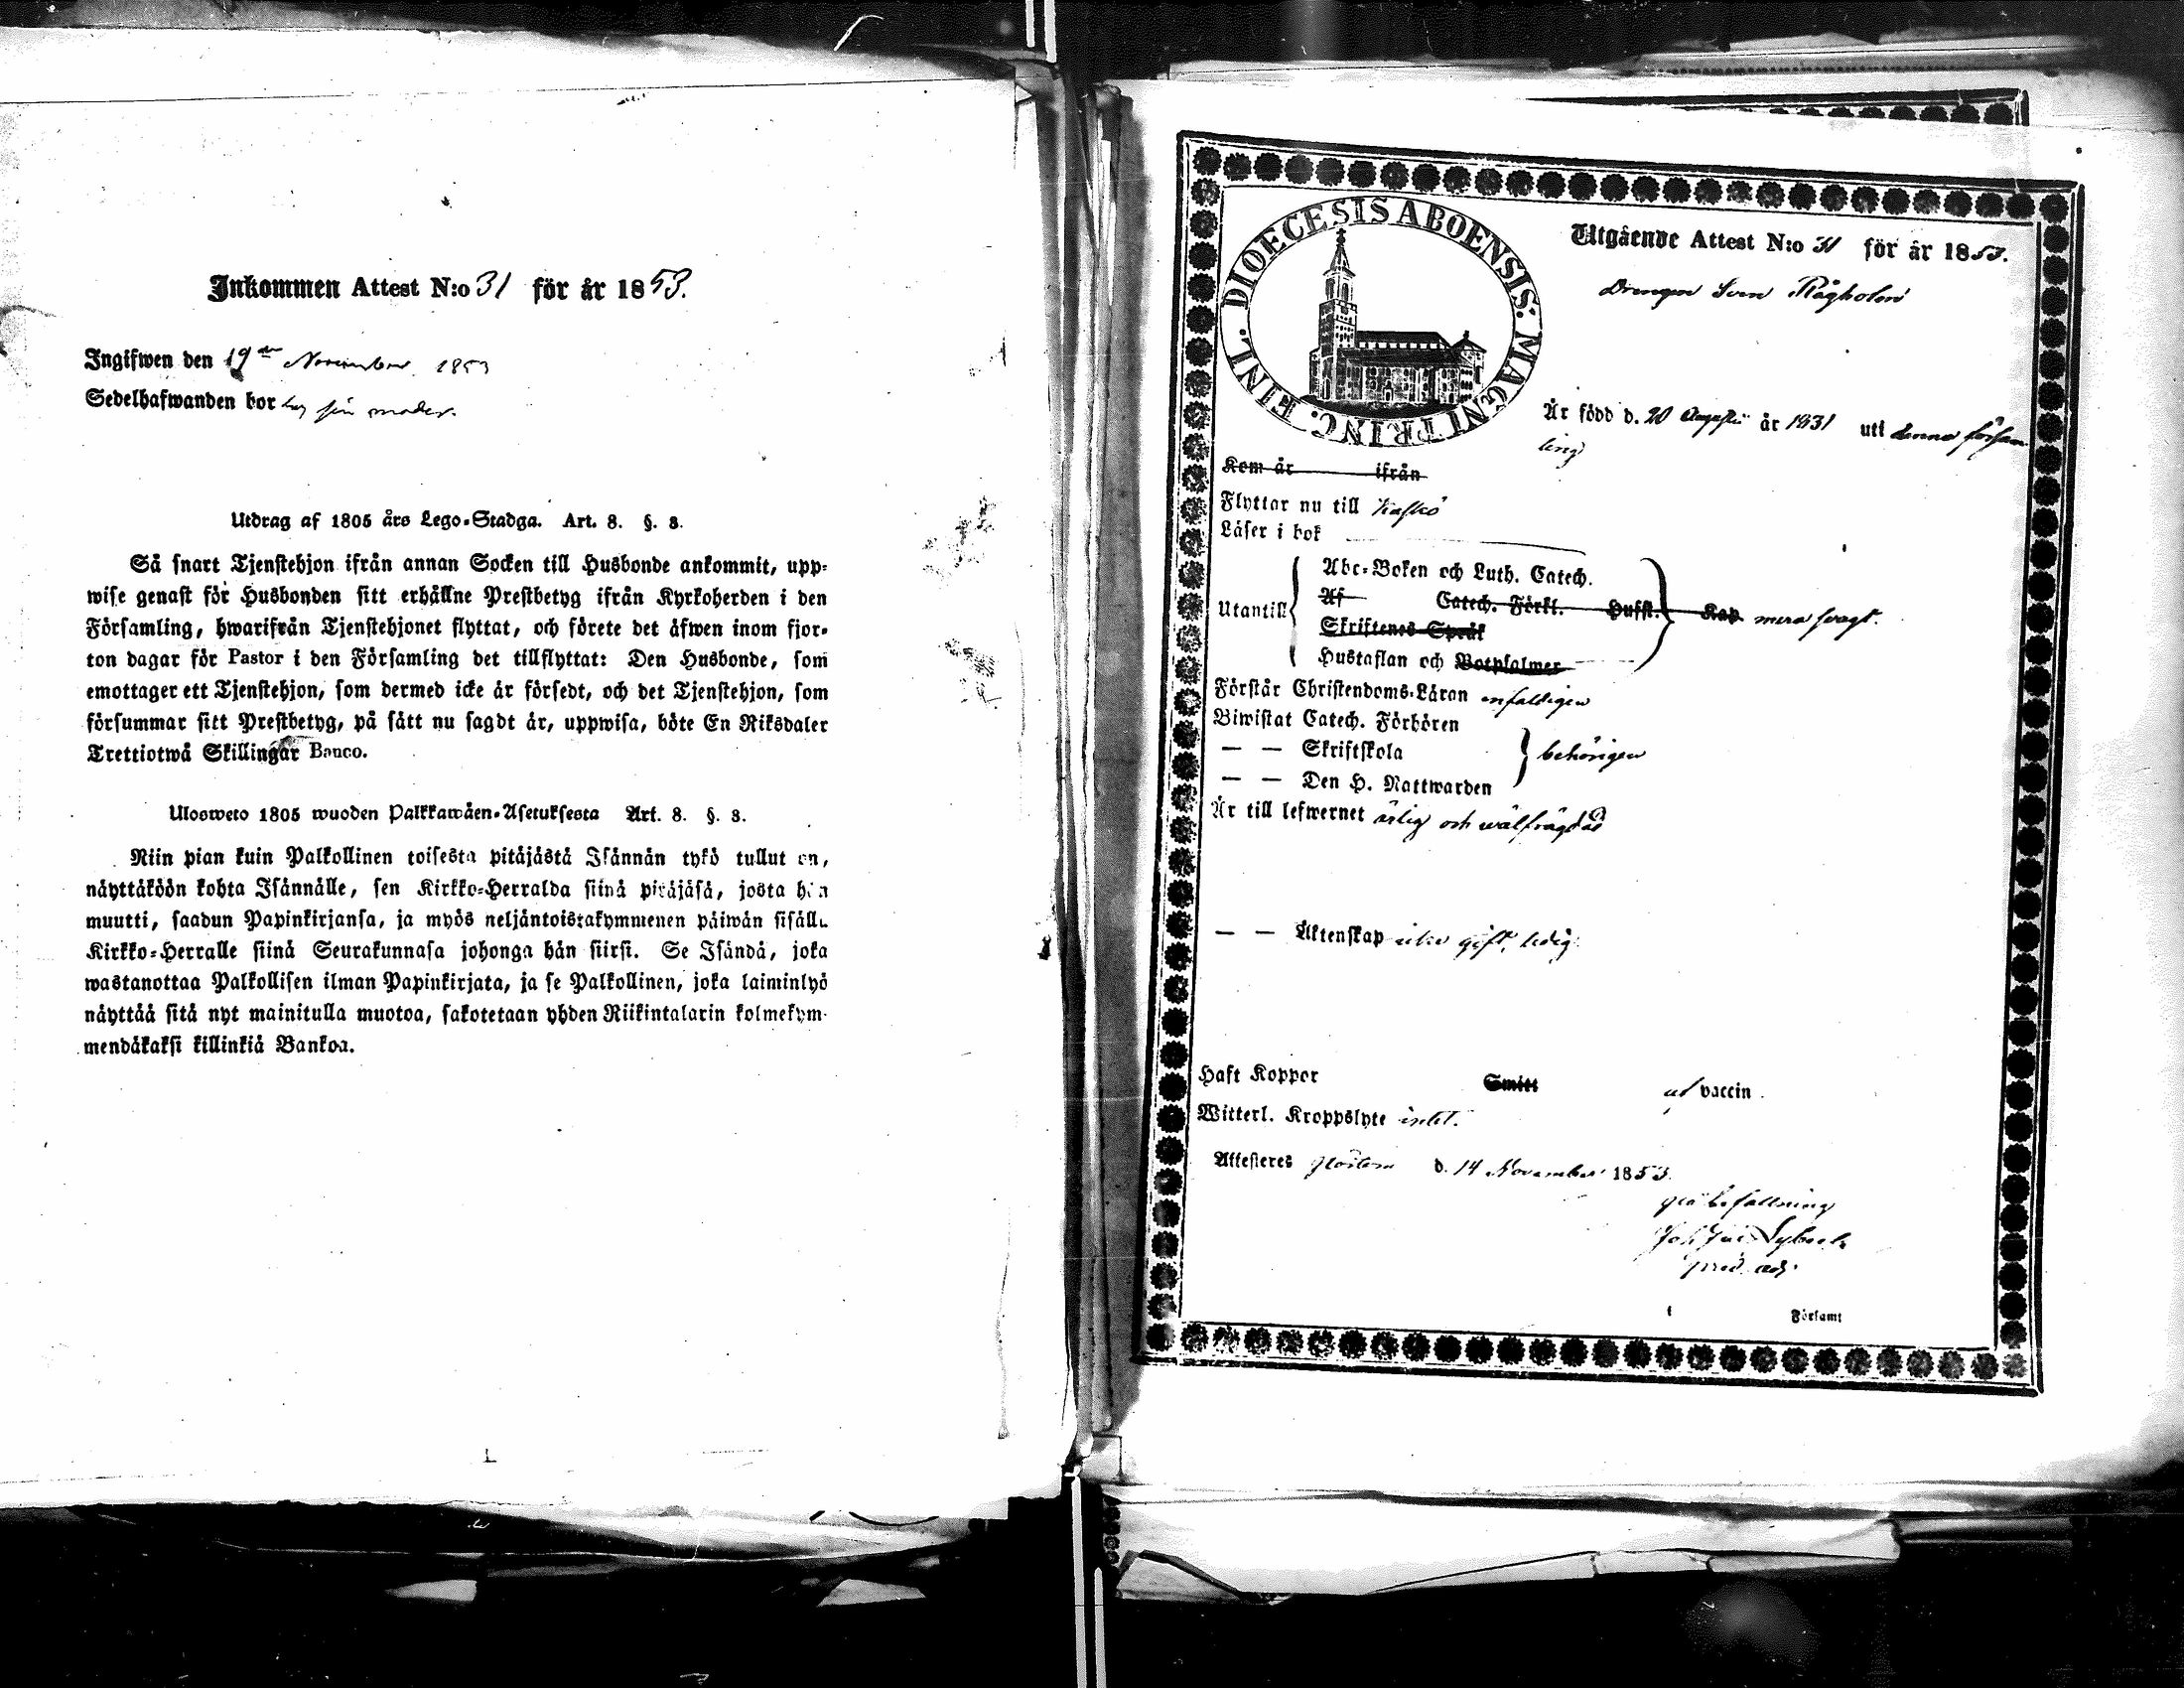 Inkommen Attest N:o 31 för år 1853.
Ingifwen den 19de November 1853
Sedelhafwanden bor hos sin moder.
Utdrag af 1805 års Lego-Stadga. Art. 8. §. 3.
Så snart Tjenstehjon ifrån annan Socken till Husbonde ankommit, upp-
wise genast för Husbonden sitt erhållne Prestbetyg ifrån Kyrkoherden i den
Församling, hwarifrån Tjenstehjonet flyttat, och förete det äfwen inom fjor-
ton dagar för Pastor i den Församling det tillflyttat: Den Husbonde, som
emottager ett Tjenstehjon, som dermed icke är försedt, och det Tjenstehjon, som
försummar sitt Prestbetyg, på sätt nu sagdt är, uppwisa, böte En Riksdaler
Trettiotwå Skillingar Banco.
Ulosweto 1805 wuoden Palkkawäen-Asetuksesta Art. 8. §. 3.
Niin pian kuin Palkollinen toisesta pitäjästä Isännän tykö tullut on,
näyttäköön kohta Isännälle, sen Kirkko-Herralda siinä pitäjäsä, josta hän
muutti, saadun Papinkirjansa, ja myös neljäntoistakymmenen päiwän sisällä
Kirkko-Herralle siinä Seurakunnasa johonga hän siirsi. Se Isändä, joka
wastanottaa Palkollisen ilman Papinkirjata, ja se Palkollinen, joka laiminlyö
näyttää sitä nyt mainitulla muotoa, sakotetaan yhden Riikintalarin kolmekym-
mendäkaksi killinkiä Bankoa.
DIOECESIS ABOENSIS. MAGNI PRINC. FINL.
Utgående Attest N:o 31 för år 1853.
Drengen Sven Rågholm
Är född d. 20 Augusti år 1831 uti denna försam
ling
Kom år ifrån
Flyttar nu till
Läser i bok
Utantill
Abc-Boken och Luth. Catech.
Af Catech. Förkl. Hufst. Kap. mera svagt.
Skriftenes Språk
Hustaflan och Botpsalmer
Förstår Christendoms-Läran enfaldigen
Biwistat Catech. Förhören
— — Skriftskola behörigen
— — Den H. Nattwarden
Är till lefwernet ärlig och wälfrägdad
— — Äktenskap icke gift, ledig.
Haft Koppor Smitt af vaccin.
Witterl. Kroppslyte intet.
Attesteras d. 14 November 1853.
befallning
Joh
adj.
Församl